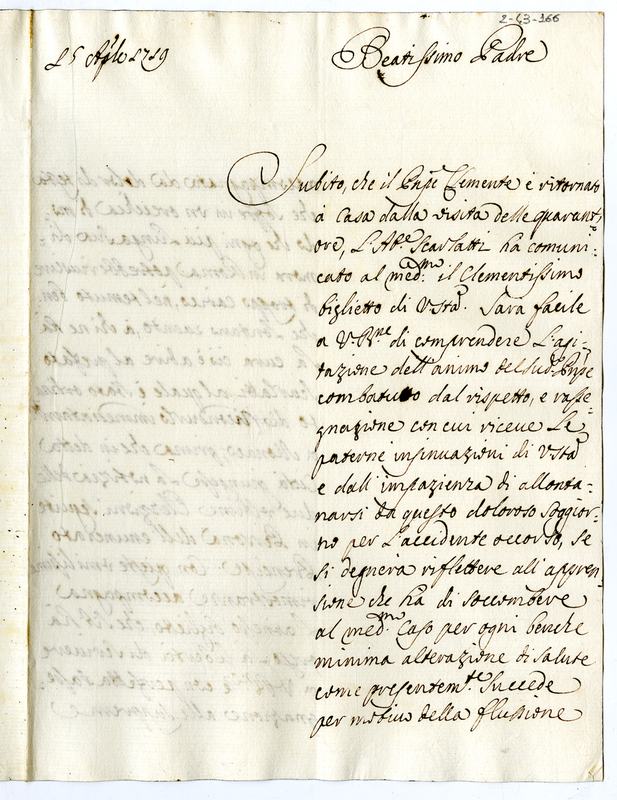 2-43-166
15 Aple 1719
Beatissimo Padre
Subito, che il Pnpe Clemente è ritornato
à casa dalla visita delle quarant'
ore, L'Abe Scarlatti ha comuni-
cato al medmo il Clementissimo
biglietto di V. Sta. Sara facile
a V. Bne di comprendere L'agi-
tazione dell'animo del sudo Pnpe
combatuto dal rispetto, e rasse-
gnazione con cui riceve Le
paterne insinuazioni di V Sta
e dall'impazienza di allonta-
narsi da questo doloroso soggior-
no per L'accidente occorso, se
si degnerà riflettere all'appren-
sione che hà di soccombere
al medmo Caso per ogni benche
minima alterazione di salute
come presentemte Succede
per motivo della flussione